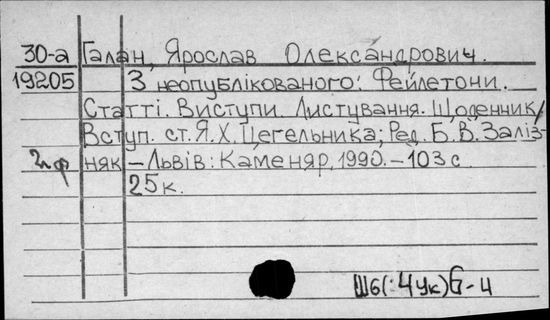 30-а Галан, Ярослав Олександрович.
19205 З неопублікованого: Фейлетони.
Статті. Виступи. Листування. Щоденник/
Вступ. ст. Я.Х. Цегельника; Ред. Б.В. Заліз-
2 ф няк – Львів: Каменяр, 1990. – 103 с
25 к.
Ш6(:4Ук)6-4